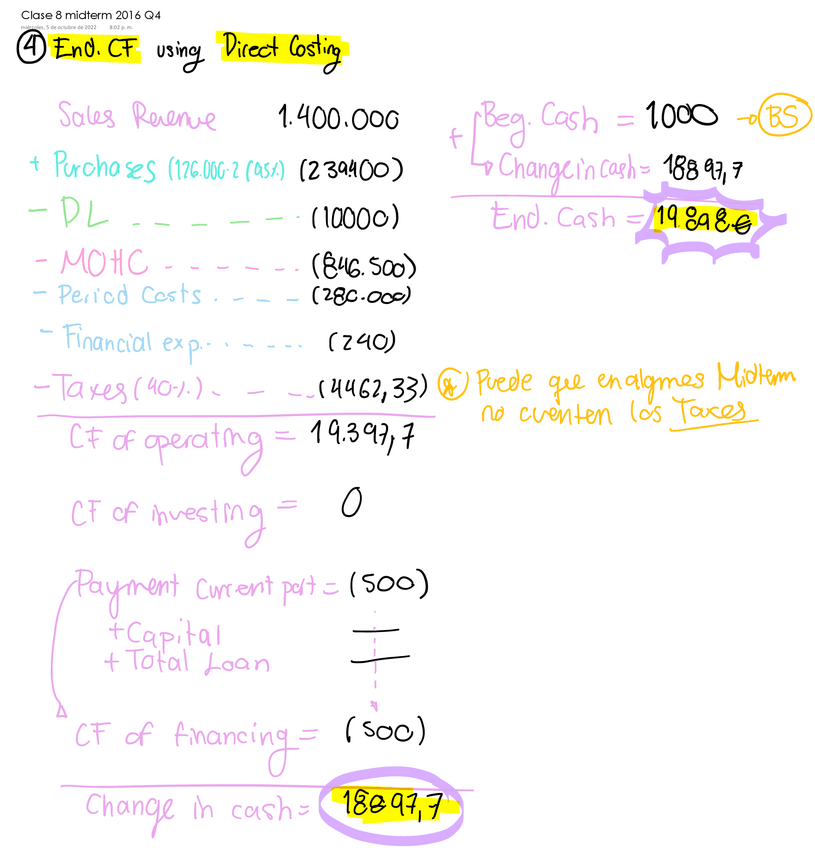 Clase 8 midterm 2016 Q4
miércoles, 5 de octubre de 2022 8:02 p. m.
④ End. CF using Direct Costing
Sales Revenue 1.400.000
+ Purchases (126.000·2 (95%) (239400)
- DL - - - - - - (10000)
- MOHC - - - - - - (846.500)
- Period Costs . - - - (280.000)
- Financial exp. - . . - - - . (240)
- Taxes (40%) . - - .. (4462,33)
CF of operating = 19.397,7
CF of investing = 0
Payment Current part = (500)
+ Capital —
+ Total Loan —
CF of financing = (500)
Change in cash = 18897,7
+ Beg. Cash = 1000 → BS
Change in cash = 18897,7
End. Cash = 19.898
* Puede que en algunos Midterm
no cuenten los Taxes